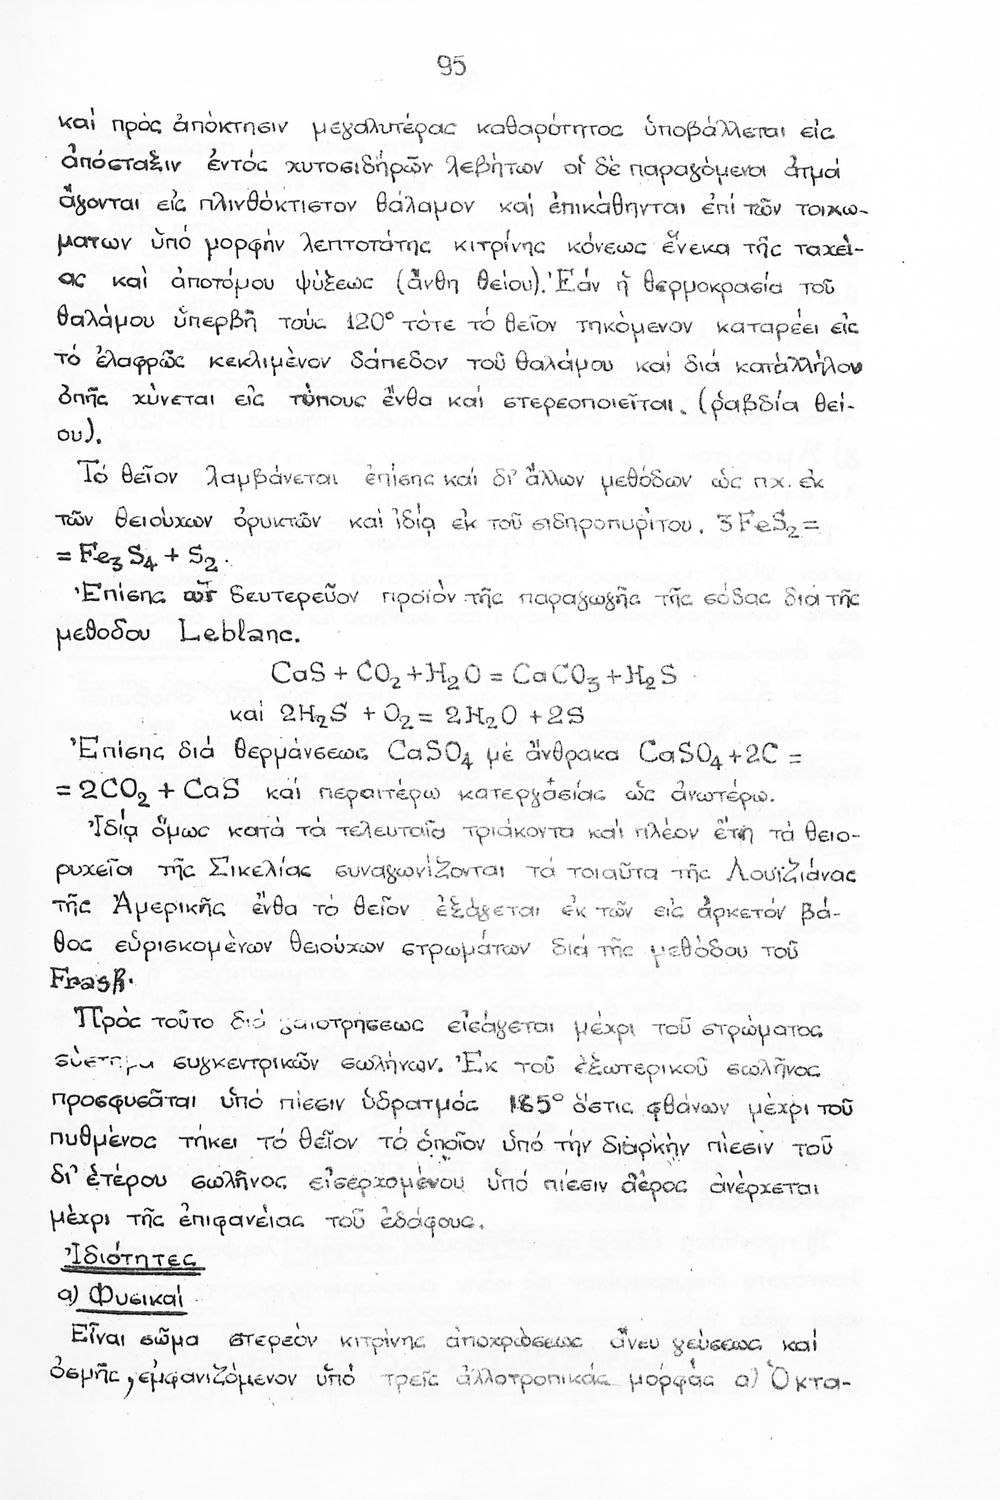 95
καί πρός ἀπόκτησιν μεγαλυτέρας καθαρότητος ὑποβάλλεται εἰς
ἀπόσταξιν ἐντός χυτοσιδήρῶν λεβήτων οἱ δέ παραγόμενοι ἀτμοί
ἄγονται εἰς πλινθόκτιστον θάλαμον καί ἐπικάθηνται ἐπί τῶν τοιχω-
ματων ὑπό μορφήν λεπτοτάτης κιτρίνης κόνεως ἕνεκα τῆς ταχεί-
ας καί ἀποτόμου ψύξεως (ἄνθη θείου). Ἐάν ἡ θερμοκρασία τοῦ
θαλάμου ὑπερβῆ τούς 120° τότε τό θεῖον τηκόμενον καταρέει εἰς
τό ἐλαφρῶς κεκλιμένον δάπεδον τοῦ θαλάμου καί διά καταλλήλου
ὀπῆς χύνεται εἰς τύπους ἔνθα καί στερεοποιεῖται. (ραβδία θεί-
ου).
Τό θεῖον λαμβάνεται ἐπίσης καί δι' ἄλλων μεθόδων ὡς π.χ. ἐκ
τῶν θειούχων ὀρυκτῶν καί ἰδίᾳ ἐκ τοῦ σιδηροπυρίτου. 3FeS₂=
= Fe₃S₄ + S₂.
Ἐπίσης ὡς δευτερεῦον προϊόν τῆς παραγωγῆς τῆς σόδας δια τῆς
μεθόδου Leblanc.
CaS + CO₂ + H₂O = CaCO₃ + H₂S
καί 2H₂S + O₂ = 2H₂O + 2S
Ἐπίσης διά θερμάνσεως CaSO₄ μέ ἄνθρακα CaSO₄ + 2C =
= 2CO₂ + CaS καί περαιτέρω κατεργασίας ὡς ἀνωτέρω.
Ἰδίᾳ ὅμως κατά τά τελευταῖα τριάκοντα καί πλέον ἔτη τά θειο-
ρυχεῖα τῆς Σικελίας συναγωνίζονται τά τοιαῦτα τῆς Λουϊζιάνας
τῆς Ἀμερικῆς ἔνθα τό θεῖον ἐξάγεται ἐκ τῶν εἰς ἀρκετόν βά-
θος εὑρισκομένων θειούχων στρωμάτων διά τῆς μεθόδου τοῦ
Frash.
Πρός τοῦτο διά γαιοτρήσεως εἰσάγεται μέχρι τοῦ στρώματος
σύστημα συγκεντρικῶν σωλήνων. Ἐκ τοῦ ἐξωτερικοῦ σωλῆνος
προσφυσᾶται ὑπό πίεσιν ὑδρατμός 165° ὅστις φθάνων μέχρι τοῦ
πυθμένος τήκει τό θεῖον τό ὁποῖον ὑπό τήν διαρκήν πίεσιν τοῦ
δι' ἑτέρου σωλῆνος εἰσερχομένου ὑπό πίεσιν ἀέρος ἀνέρχεται
μέχρι τῆς ἐπιφανείας τοῦ ἐδάφους.
Ἰδιότητες
α) Φυσικαί
Εἶναι σῶμα στερεόν κιτρίνης ἀποχρώσεως ἄνευ γεύσεως καί
ὀσμῆς, ἐμφανιζόμενον ὑπό τρεῖς ἀλλοτροπικάς μορφάς α) Ὀκτα-